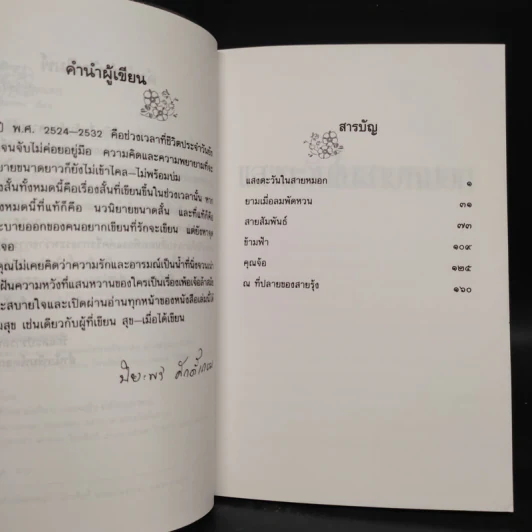 คำนำผู้เขียน
ปี พ.ศ. 2524-2532 คือช่วงเวลาที่ชีวิตประจำวัน
จนจับไม่ค่อยอยู่มือ ความคิดและความพยายามที่จะ
ขนาดยาวก็ยังไม่เข้าโคล-ไม่พร้อมบ่ม
สั้นทั้งหมดนี้คือเรื่องสั้นที่เขียนขึ้นในช่วงเวลานั้น
หมดนี้ที่แท้ก็คือ นวนิยายขนาดสั้น และที่แท้ก็คือ
ระบายออกของคนอยากเขียนที่รักจะเขียน แต่ยังหา
จอ
คุณไม่เคยคิดว่าความรักและอารมณ์เป็นน้ำที่นิ่ง
ฝันความหวังที่แสนหวานของใครเป็นเรื่องเพ้อเจ้อ
สบายใจและเปิดผ่านอ่านทุกหน้าของหนังสือเล่มนี้
สุข เช่นเดียวกับผู้ที่เขียน สุข-เมื่อได้เขียน
สารบัญ
แสงตะวันในสายหมอก ๑
ยามเมื่อลมพัดหวน ๓๑
สายสัมพันธ์ ๗๓
ข้ามฟ้า ๑๐๙
คุณจ้อ ๑๒๕
ณ ที่ปลายของสายรุ้ง ๑๖๐